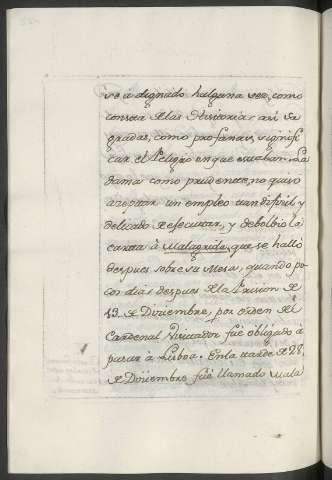 se á dignado halguna vez, como
consta de las Historias asi Sa
gradas, como profanas, signifi
car el Peligro en que estaban. La
dama como prudente, no quiso
azeptar un empleo tan dificil y
delicado de efecutar, y debolbio la
carta à Malagrida, que se halló
despues sobre su Mesa, quando po
cos dias despues de la Prision de
13. de Diziembre, por orden del
Cardenal Visitador fue obligado à
pasar à Lisboa. En la tarde de 28,
de Diziembre fué llamado Mala